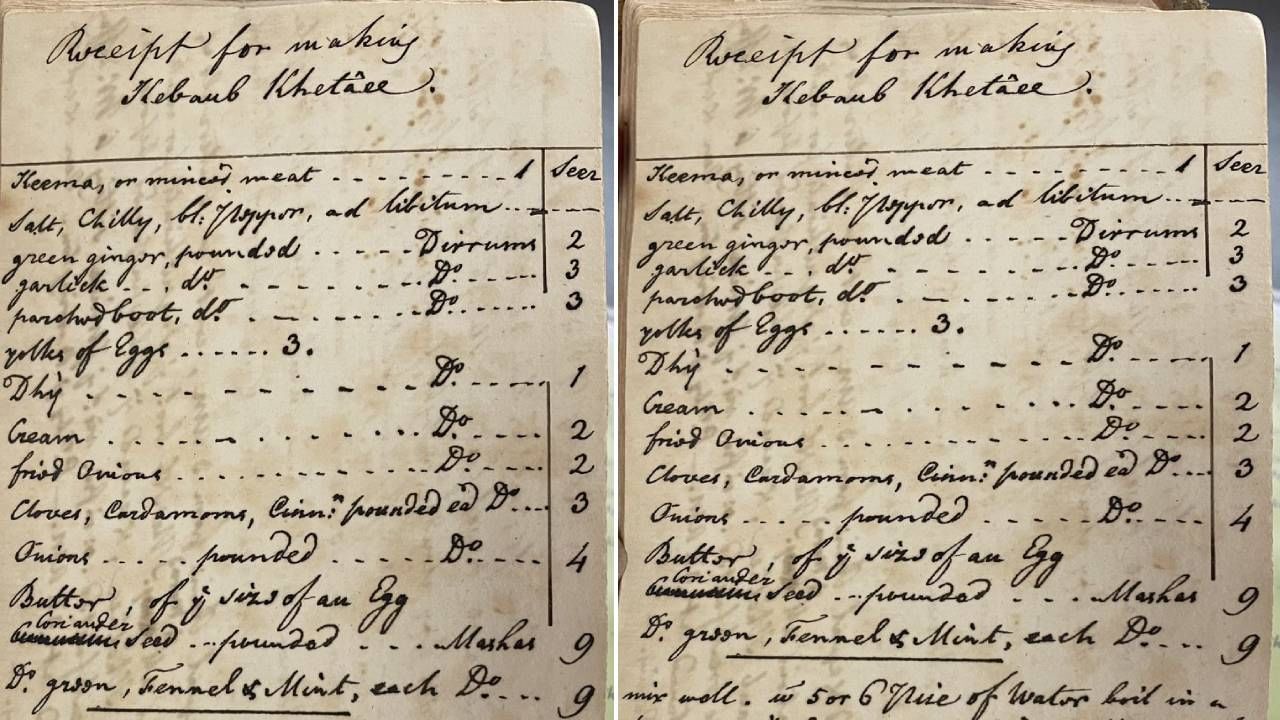 Receipt for making
Kebaub Khetâee.
Seer
Keema, or minced meat - - - - - - - - - 1
Salt, Chilly, bl: Pepper, ad libitum - - - - - -
green ginger, pounded - - - - - Dirrums 2
garlick - - - do - - - - - - - - Do - - - - - 3
parched boot, do - - - - - - - Do - - - - - 3
yolks of Eggs - - - - - - 3.
Dhÿ - - - - - - - - - Do - - - - - 1
Cream - - - - - - - - - Do - - - - - 2
fried Onions - - - - - - - - Do - - - - - 2
Cloves, Cardamoms, Cinn:n pounded ea Do - - - 3
Onions - - - - - pounded - - - - - Do - - - - 4
Butter, of ÿ size of an Egg
Coriander
seed - - pounded - - - Mashas 9
Do green, Fennel & Mint, each Do - - - 9
Receipt for making
Kebaub Khetâee.
Seer
Keema, or minced meat - - - - - - - - - 1
Salt, Chilly, bl: Pepper, ad libitum - - - - - -
green ginger, pounded - - - - - Dirrums 2
garlick - - - do - - - - - - - - Do - - - - - 3
parched boot, do - - - - - - - Do - - - - - 3
yolks of Eggs - - - - - - 3.
Dhÿ - - - - - - - - - Do - - - - - 1
Cream - - - - - - - - - Do - - - - - 2
fried Onions - - - - - - - - Do - - - - - 2
Cloves, Cardamoms, Cinn:n pounded ea Do - - - 3
Onions - - - - - pounded - - - - - Do - - - - 4
Butter, of ÿ size of an Egg
Coriander
seed - - pounded - - - Mashas 9
Do green, Fennel & Mint, each Do - - - 9
mix well. w 5 or 6 Pice of Water boil in a